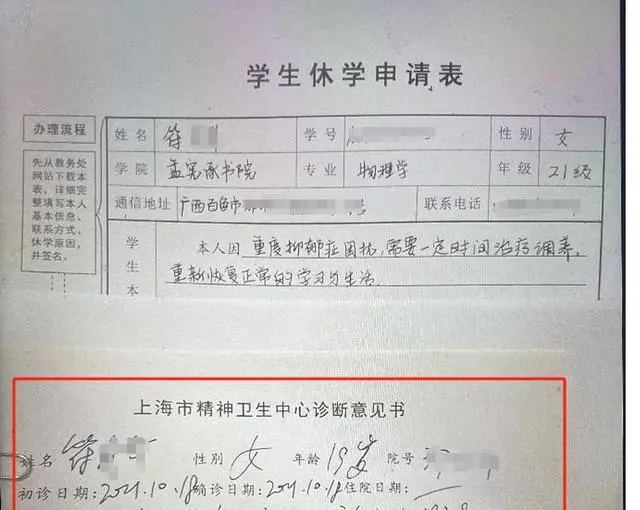 学生休学申请表
办理流程
先从教务处
网站下载本
表，详细完
整填写本人
基本信息、
联系方式、
休学原因，
并签名。
姓名 符 学号 性别 女
学院 孟宪承书院 专业 物理学 年级 21级
通信地址 广西百色市 联系电话
学生本
本人因重度抑郁症困扰，需要一定时间治疗调养，
重新恢复正常的学习与生活.
上海市精神卫生中心诊断意见书
姓名 符 性别 女 年龄 19岁 院号
初诊日期：2021.10.18 确诊日期：2021.10.18 住院日期：